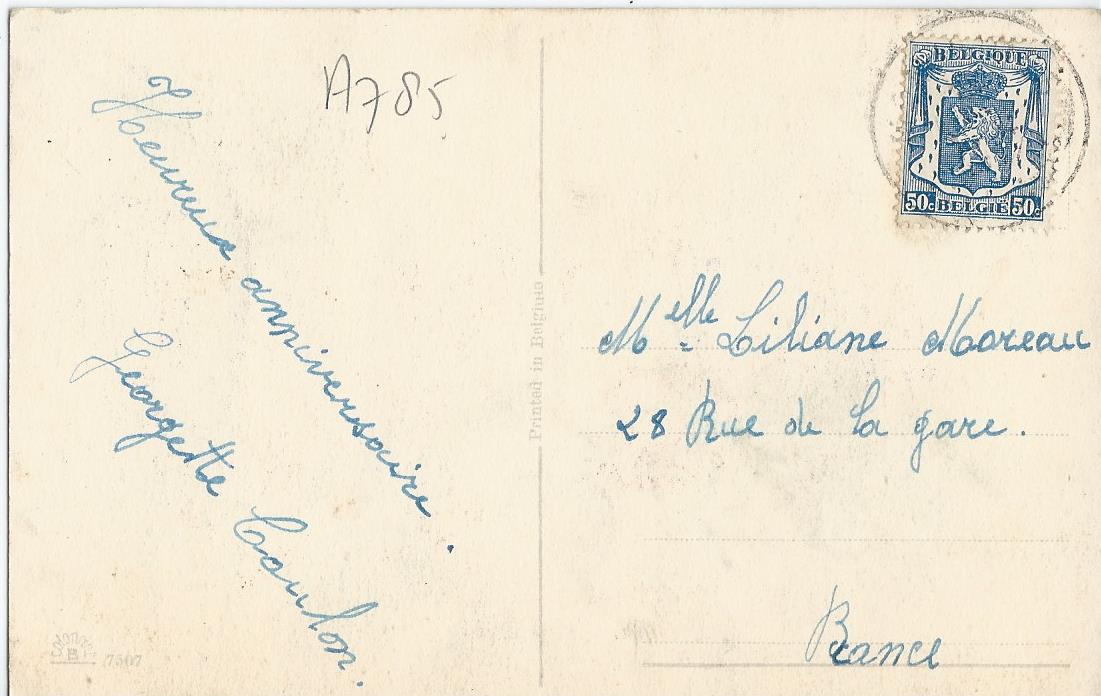 A785
Heureux anniversaire.
Georgette Coulon.
Printed in Belgium
BELGIQUE
50c BELGIË 50c
Melle Liliane Moreau
28 Rue de la gare.
Rance
B
7507